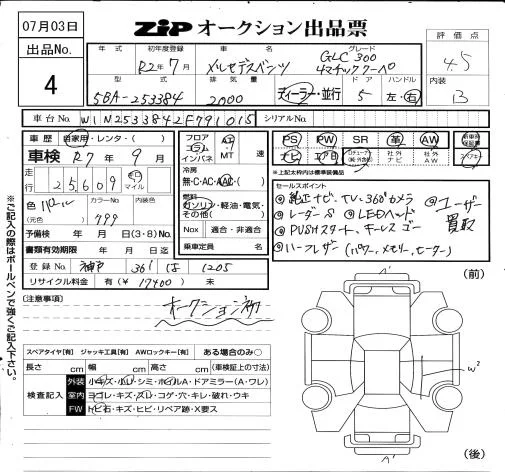 07月03日
ZIP オークション出品票
出品No.
4
評価点
4.5
内装
B
年式 初年度登録 車名 グレード
R2年7月 メルセデスベンツ GLC300 4マチッククーペ
型式 排気量 ドア ハンドル
5BA-253384 2000 ディーラー・並行 5 左・右
車台No. W1N2533842F791015 シリアルNo.
車歴 自家用・レンタ・( )
車検 R7年9月
走行 25,609 km マイル
色 パール カラーNo 799 内装色
(元色)
予備検 年 月 日(3・8)No.
書類有効期限 年 月 日迄
登録No. 神戸 361 は 1205
リサイクル料金 有(¥17400) 未
フロア コラム インパネ AT MT 速
冷房 無・C・AC・AAC・( )
燃料 ガソリン・軽油・電気・その他( )
Nox 適合・非適合
乗車定員 名
PS PW SR 革 AW 新車時保証書
ナビ エアB 社外ナビ 社外AW スペアキー
*上記太枠内は標準装備品
セールスポイント
◎純正ナビ、TV、360°カメラ
◎レーダーS ◎LEDヘッド
◎PUSHスタート、キーレスゴー
◎ハーフレザー(パワー、メモリー、ヒーター)
◎ユーザー買取
(注意事項)
オークション初
スペアタイヤ[有] ジャッキ工具[有] AWロックキー[有] ある場合のみ○
長さ cm 幅 cm 高さ cm (車検証上の寸法)
検査記入
外装 小キズ・小凹・シミ・ホイルA・ドアミラー(A・ワレ)
室内 ヨゴレ・キズ・スレ・コゲ・穴・キレ・破れ・ウキ
FW トビ石・キズ・ヒビ・リペア跡・X要ス
(前)
W2
(後)
※ご記入の際はボールペンで強くご記入下さい。